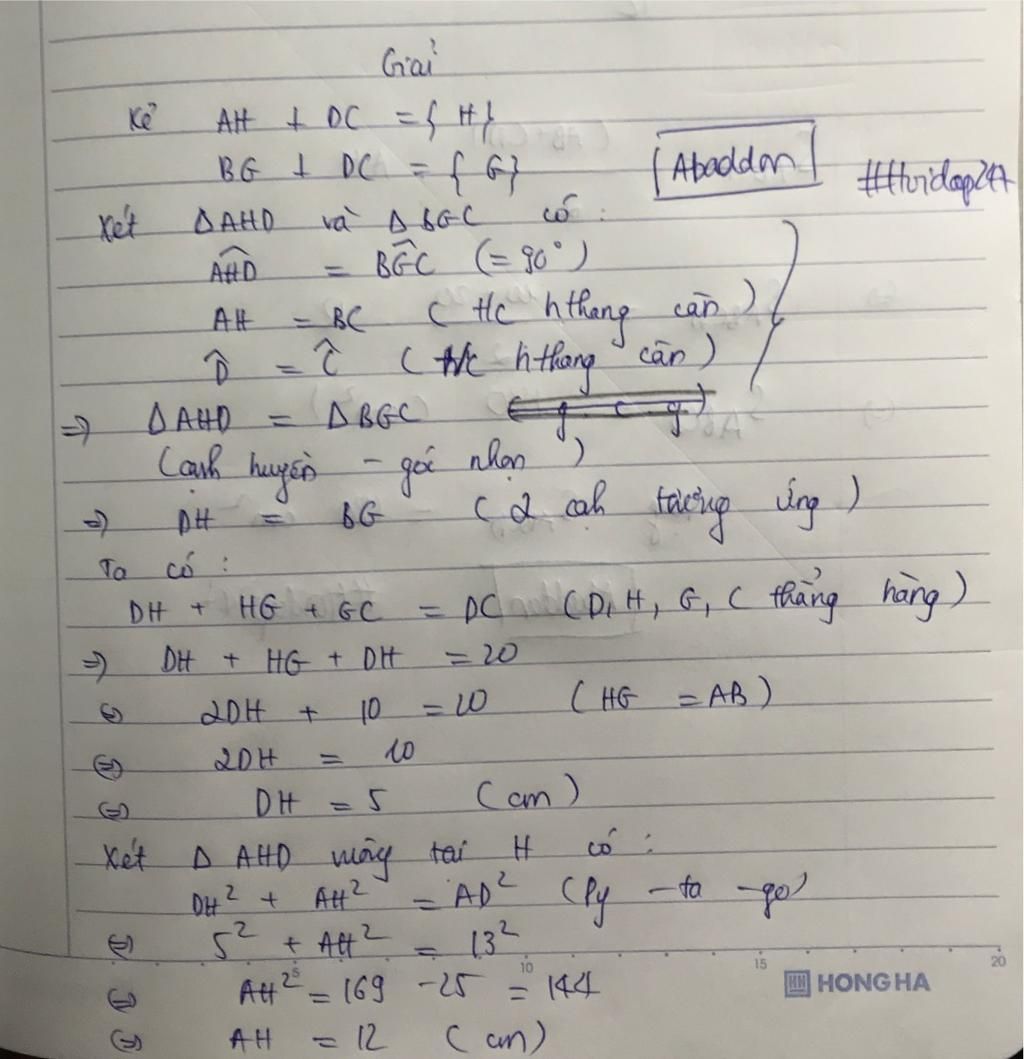 Giải
Kẻ AH ⊥ DC = { H}
BG ⊥ DC = { G}
[Abaddon]
Xét ΔAHD và ΔBGC có :
AHD = BGC (= 90°)
AH = BC ( t/c hthang cân )
D̂ = Ĉ ( t/c hthang cân )
=> ΔAHD = ΔBGC ( g c g )
(cạnh huyền - góc nhọn )
=> DH = BG ( 2 cah tương ứng )
Ta có :
DH + HG + GC = DC (D, H, G, C thẳng hàng )
=> DH + HG + DH = 20
<=> 2DH + 10 = 20 ( HG = AB )
<=> 2DH = 10
<=> DH = 5 ( cm )
Xét Δ AHD vuông tại H có :
DH² + AH² = AD² (Py - ta - go)
<=> 5² + AH² = 13²
5 10 15 20
<=> AH² = 169 - 25 = 144
HH HONG HA
<=> AH = 12 ( cm )